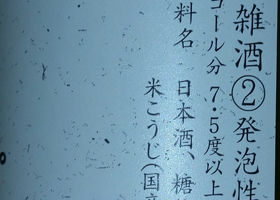 雑酒②発泡性
コール分 7.5度以上
料名 日本酒、糖
米こうじ(国産